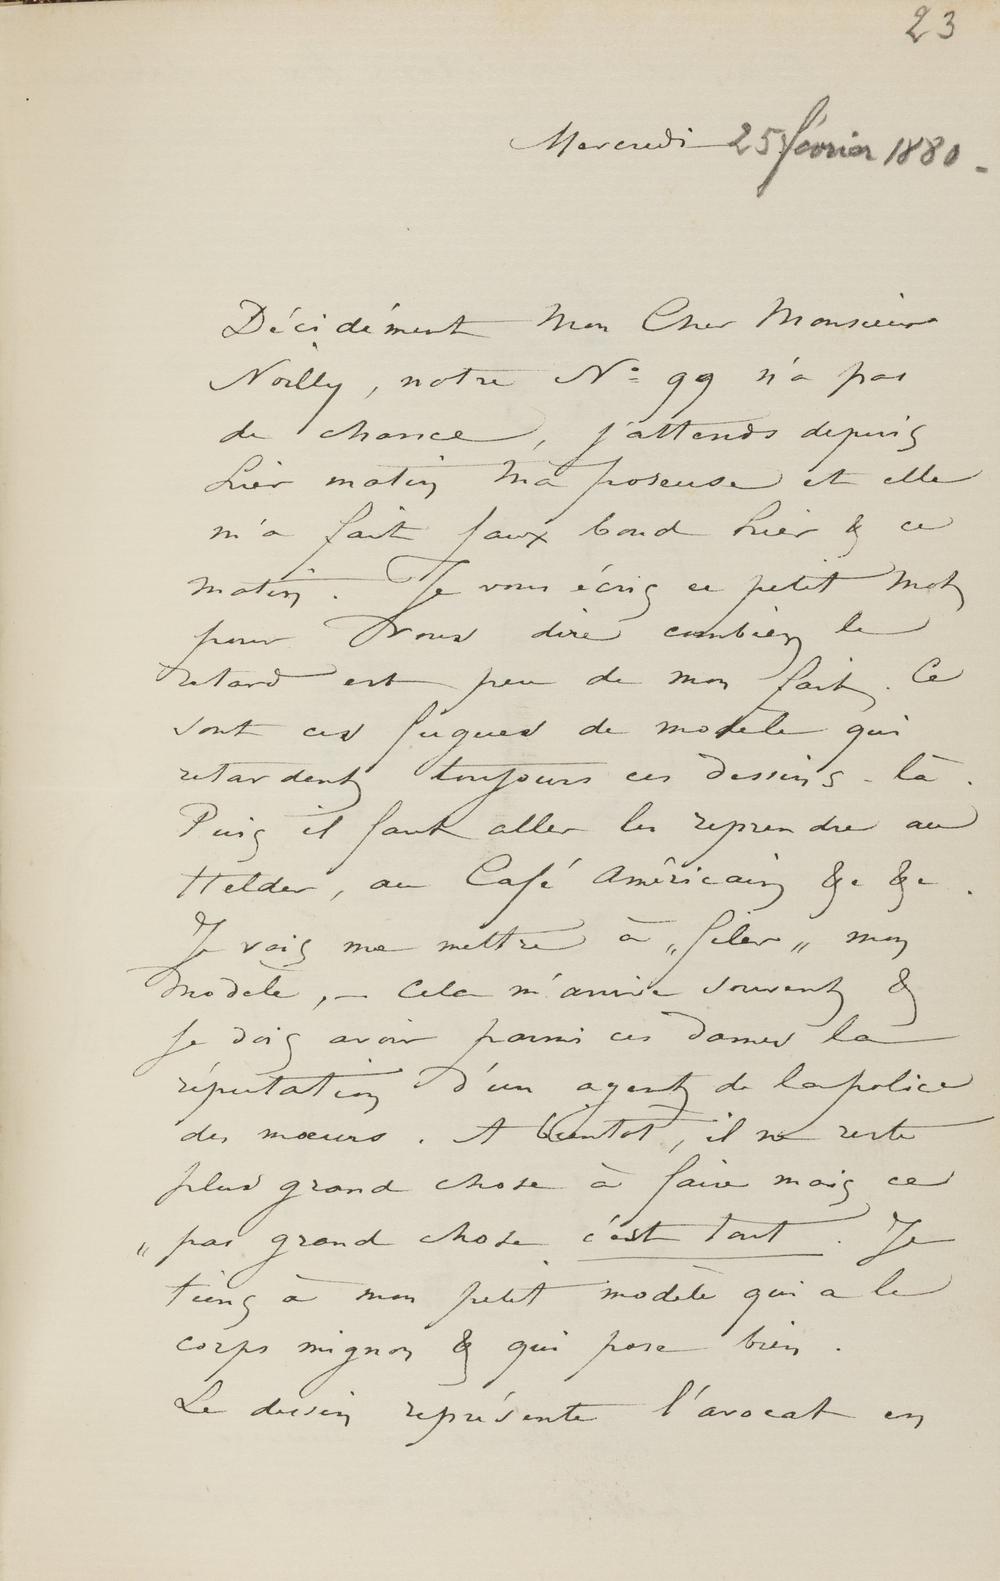 23
Mercredi 25 février 1880 -
Décidément Mon Cher Monsieur
Noilly, notre N° 99 n'a pas
de chance, j'attends depuis
hier matin ma poseuse et elle
m'a fait faux bond hier & ce
matin. Je vous écris ce petit mot
pour vous dire combien le
retard est peu de mon fait. Ce
sont ces fugues de modèle qui
retardent toujours ces dessins-là.
Puis il faut aller les reprendre au
Helder, au Café Américain &c &c.
Je vais me mettre à „filer„ mon
modèle, - cela m'arrive souvent &
je dois avoir parmi ces dames la
réputation d'un agent de la police
des mœurs. A bientôt, il ne reste
plus grand chose à faire mais ce
„ pas grand chose c'est tout. Je
tiens à mon petit modèle qui a le
corps mignon & qui pose bien.
Le dessin représente l'avocat en